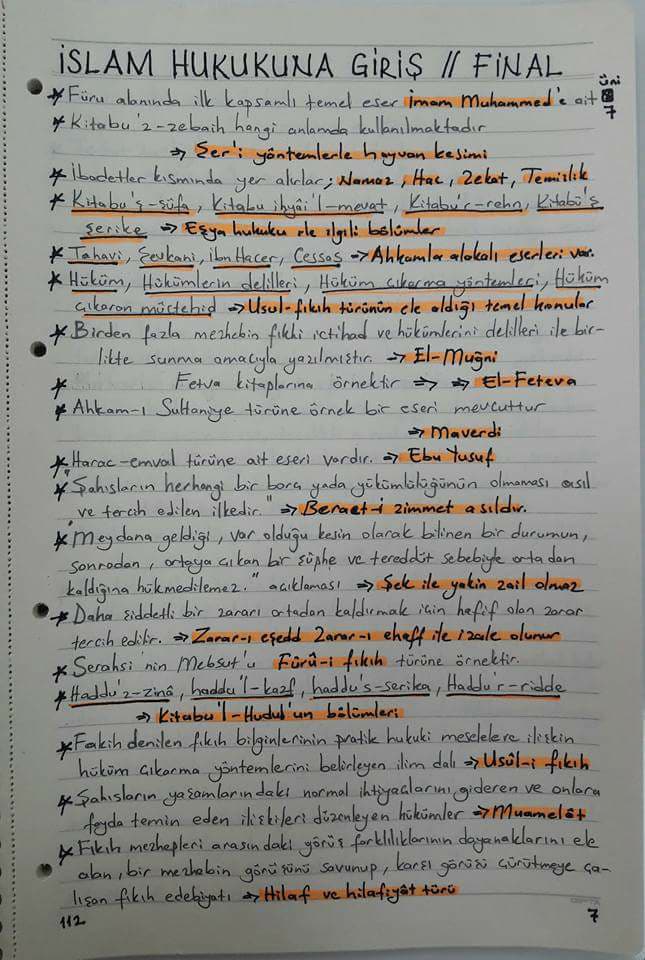 İSLAM HUKUKUNA GİRİŞ // FİNAL
* Füru alanında ilk kapsamlı temel eser İmam Muhammed'e ait
üni
7
* Kitabu'z-zebaih hangi anlamda kullanılmaktadır
⇒ Şer'i yöntemlerle hayvan kesimi
* İbadetler kısmında yer alırlar; Namaz, Hac, Zekat, Temizlik
* Kitabu'ş-şüfa, Kitabu ihyâi'l-mevat, Kitabu'r-rehn, Kitabü'ş
şerike ⇒ Eşya hukuku ile ilgili bölümler
* Tahavi, Şevkani, ibn Hacer, Cessas ⇒ Ahkamla alakalı eserleri var.
* Hüküm, Hükümlerin delilleri, Hüküm çıkarma yöntemleri, Hüküm
çıkaran müctehid ⇒ Usul-fıkıh türünün ele aldığı temel konular
* Birden fazla mezhebin fıkhi ictihad ve hükümlerini delilleri ile bir-
likte sunma amacıyla yazılmıştır. ⇒ El-Muğni
* Fetva kitaplarına örnektir ⇒ ⇒ El-Feteva
* Ahkam-ı Sultaniye türüne örnek bir eseri mevcuttur
⇒ Maverdi
* Harac-emval türüne ait eseri vardır. ⇒ Ebu Yusuf
* "Şahısların herhangi bir borç yada yükümlülüğünün olmaması asıl
ve tercih edilen ilkedir." ⇒ Beraet-i zimmet asıldır.
* "Meydana geldiği, var olduğu kesin olarak bilinen bir durumun,
sonradan, ortaya çıkan bir şüphe ve tereddüt sebebiyle ortadan
kaldığına hükmedilemez." açıklaması ⇒ Şek ile yakin zail olmaz
* Daha şiddetli bir zararı ortadan kaldırmak için hafif olan zarar
tercih edilir. ⇒ Zarar-ı eşedd Zarar-ı eheff ile izale olunur
* Serahsi'nin Mebsut'u Fürû-i fıkıh türüne örnektir.
* Haddu'z-zinâ, haddu'l-kazf, haddu's-serika, Haddu'r-ridde
⇒ Kitabu'l-Hudud'un bölümleri
* Fakih denilen fıkıh bilginlerinin pratik hukuki meselelere ilişkin
hüküm çıkarma yöntemlerini belirleyen ilim dalı ⇒ Usûl-i fıkıh
* Şahısların yaşamlarındaki normal ihtiyaçlarını gideren ve onlara
fayda temin eden ilişkileri düzenleyen hükümler ⇒ Muamelât
* Fıkıh mezhepleri arasındaki görüş farklılıklarının dayanaklarını ele
alan, bir mezhabin görüşünü savunup, karşı görüşü çürütmeye ça-
lışan fıkıh edebiyatı ⇒ Hilaf ve hilafiyât türü
112
7